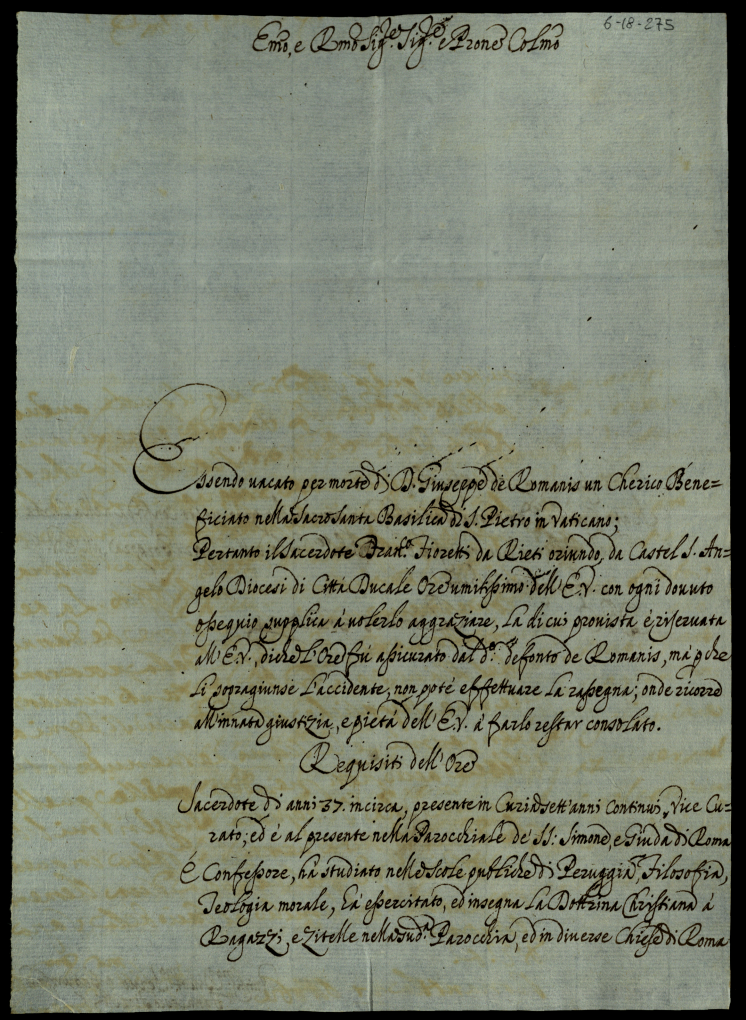 6-18-275
Emo, e Rmo Sig.re Sig.re e Prone Colmo
Essendo vacato per morte di D. Giuseppe de Romanis un Cherico Bene=
ficiato nella Sacrosanta Basilica di S. Pietro in Vaticano;
Pertanto il Sacerdote Fioretti da Rieti oriundo, da Castel S. An=
gelo Diocesi di Città Ducale Ore umilissimo dell'E.V. con ogni dovuto
ossequio supplica à volerlo aggraziare, la di cui provista è riservata
all'E.V., di che l'Ore fù assicurato dal d.o defonto de Romanis, mà pche
li sopragiunse l'accidente, non poté effettuare la rassegna; onde ricorre
all'innata giustizia, e pietà dell'E.V. à farlo restar consolato.
Requisiti dell'Ore
Sacerdote di anni 37. incirca, presente in Curia sett'anni continui, Vice Cu=
rato; ed è al presente nella Parocchiale de SS: Simone, e Giuda di Roma
È Confessore, hà studiato nelle scole publiche di Peruggia Filosofia,
Teologia morale, hà essercitato, ed insegna la Dottrina Christiana à
Ragazzi, e Zitelle nella sud.a Parocchia, ed in diverse Chiese di Roma